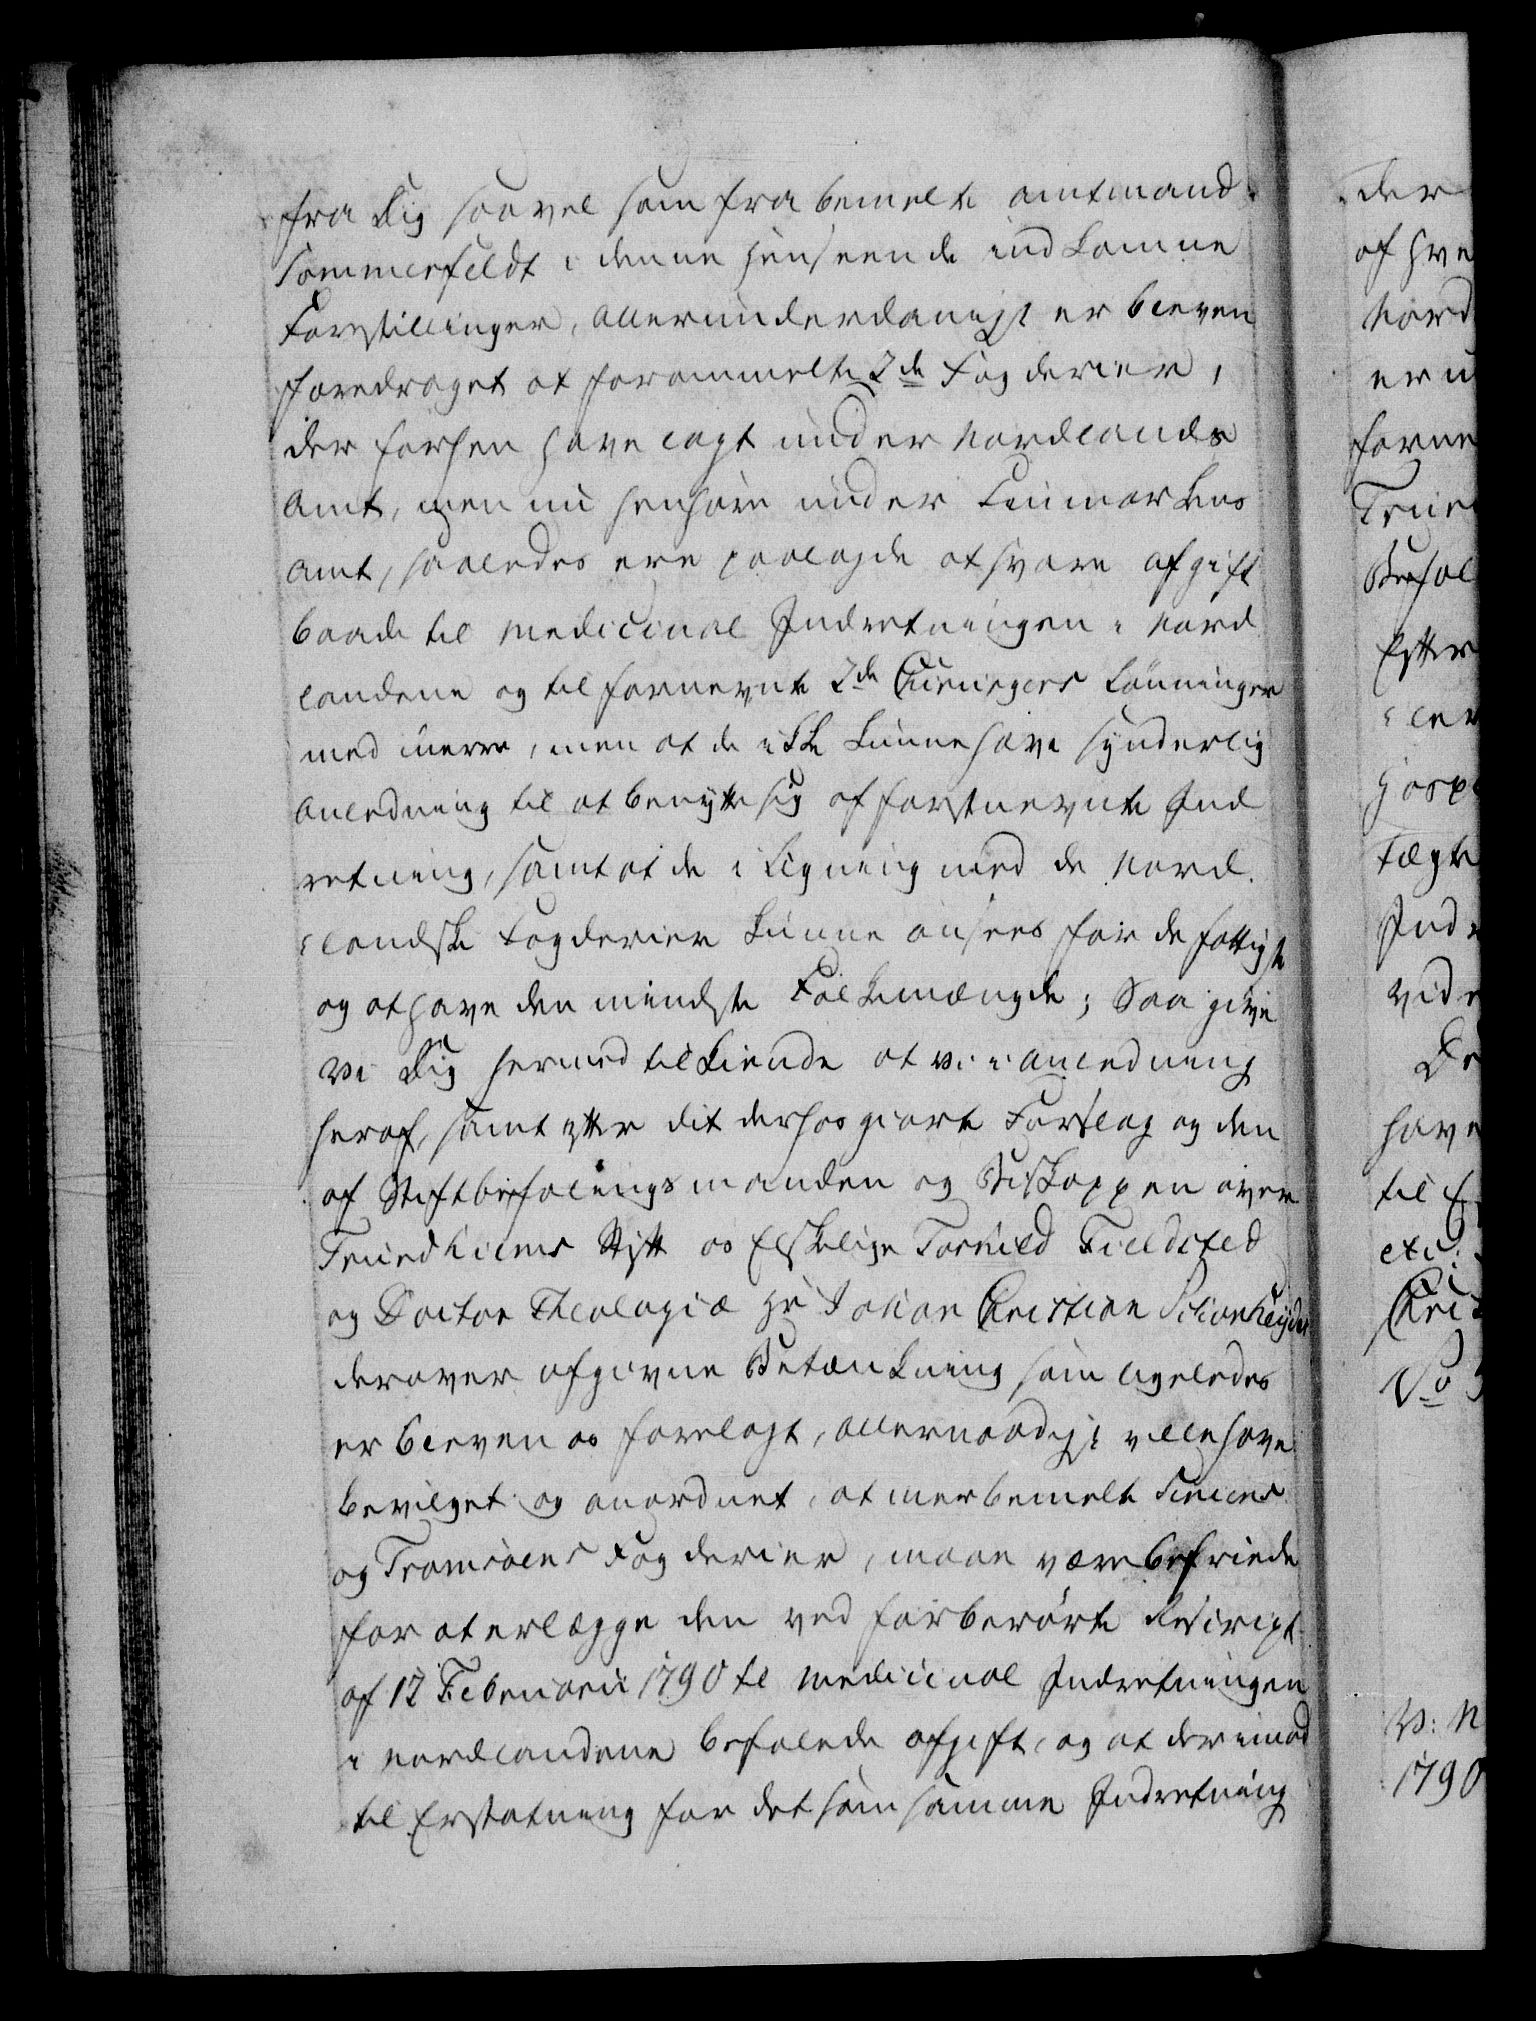 fra Dig saavel som fra bemelte Amtmand
Sommerfeldt i denne henseende indkomne
Forstillinger, allerunderdanigst er bleven
foredraget at forommelte 2de Fogderier,
der forhen have lagt under Nordlands
Amt, men nu henhøre under Finmarkens
Amt, saaledes ere paalagde at svare Afgift
baade til Medicinal Indretningen i Nord
landene og til fornevnte 2de Chirurgers Lønninger
med mere, men at de ikke kunne have synderlig
Anledning til at benytte sig af førstnevnte Ind
retning, samt at de i Ligning med de Nord
landske Fogderier kunne ansees for de fattigste
og at have den mindste Folkemængde; Saa give
Vi Dig hermed tilkiende at Vi i Anledning
heraf, samt efter dit derhos giorte Forslag og den
af Stiftbefalingsmanden og Biskoppen over
Trundhiems Stift os Elskelige Torkild Fieldsted
og Doctor Theologiæ Hr Johan Christian Schønheyder
derover afgivne Betænkning som ligeledes
er bleven os forelagt, allernaadigst ville have
bevilget og anordnet, at merbemelte Seniens
og Tromsøens Fogderier, maae være befriede
for at erlægge den ved forberørte Rescript
af 12 Februarii 1790 til Medicinal Indretningen
i Nordlandene befalede Afgift, og at derimod
til Erstatning for det som samme Indretning
der
af hve
Nord
er u
forne
Trun
Befal
Efter
ler
Hosp
Tægte
Indr
vide
De
have
til E
etc:
Chri
No
V: N
1790